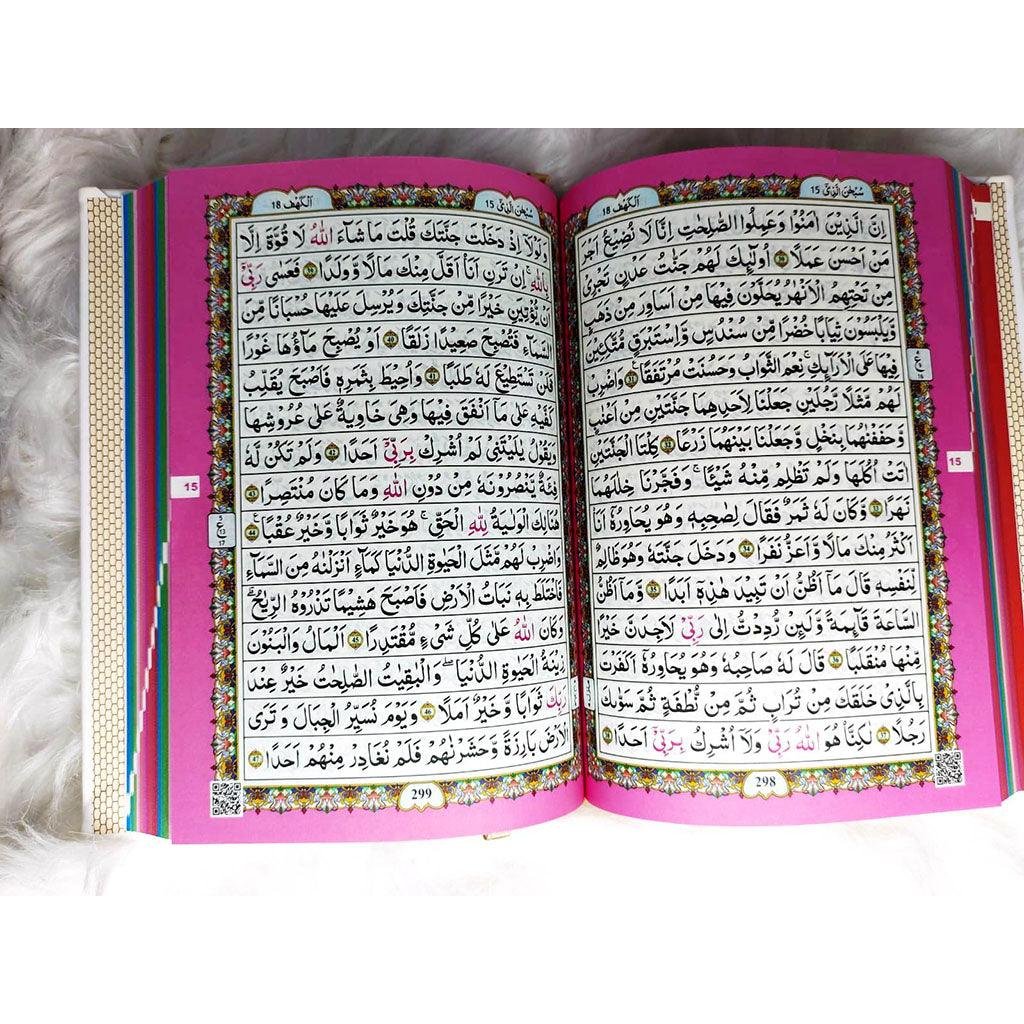 اَلْكَهْف 18
سُبْحٰنَ الَّذِىْ 15
اِنَّ الَّذِيْنَ اٰمَنُوْا وَعَمِلُوا الصّٰلِحٰتِ اِنَّا لَا نُضِيْعُ اَجْرَ
مَنْ اَحْسَنَ عَمَلًا ۝30 اُولٰٓئِكَ لَهُمْ جَنّٰتُ عَدْنٍ تَجْرِىْ
مِنْ تَحْتِهِمُ الْاَنْهٰرُ يُحَلَّوْنَ فِيْهَا مِنْ اَسَاوِرَ مِنْ ذَهَبٍ
وَّيَلْبَسُوْنَ ثِيَابًا خُضْرًا مِّنْ سُنْدُسٍ وَّاِسْتَبْرَقٍ مُّتَّكِـِٕيْنَ
فِيْهَا عَلَى الْاَرَآئِكِ ؕ نِعْمَ الثَّوَابُ وَحَسُنَتْ مُرْتَفَقًا ۝31 وَاضْرِبْ
لَهُمْ مَّثَلًا رَّجُلَيْنِ جَعَلْنَا لِاَحَدِهِمَا جَنَّتَيْنِ مِنْ اَعْنَابٍ
وَّحَفَفْنٰهُمَا بِنَخْلٍ وَّجَعَلْنَا بَيْنَهُمَا زَرْعًا ۝32 كِلْتَا الْجَنَّتَيْنِ
اٰتَتْ اُكُلَهَا وَلَمْ تَظْلِمْ مِّنْهُ شَيْـًٔا ۙ وَّفَجَّرْنَا خِلٰلَهُمَا
نَهَرًا ۝33 وَّكَانَ لَهٗ ثَمَرٌ ۚ فَقَالَ لِصَاحِبِهٖ وَهُوَ يُحَاوِرُهٗٓ اَنَا
اَكْثَرُ مِنْكَ مَالًا وَّاَعَزُّ نَفَرًا ۝34 وَدَخَلَ جَنَّتَهٗ وَهُوَ ظَالِمٌ
لِّنَفْسِهٖ ۚ قَالَ مَآ اَظُنُّ اَنْ تَبِيْدَ هٰذِهٖٓ اَبَدًا ۝35 وَّمَآ اَظُنُّ
السَّاعَةَ قَآئِمَةً ۙ وَّلَئِنْ رُّدِدْتُّ اِلٰى رَبِّىْ لَاَجِدَنَّ خَيْرًا
مِّنْهَا مُنْقَلَبًا ۝36 قَالَ لَهٗ صَاحِبُهٗ وَهُوَ يُحَاوِرُهٗٓ اَكَفَرْتَ
بِالَّذِىْ خَلَقَكَ مِنْ تُرَابٍ ثُمَّ مِنْ نُّطْفَةٍ ثُمَّ سَوّٰىكَ
رَجُلًا ۝37 لٰكِنَّا۠ هُوَ اللّٰهُ رَبِّىْ وَلَآ اُشْرِكُ بِرَبِّىْٓ اَحَدًا ۝38
298
15
اَلْكَهْف 18
سُبْحٰنَ الَّذِىْ 15
وَلَوْلَآ اِذْ دَخَلْتَ جَنَّتَكَ قُلْتَ مَا شَآءَ اللّٰهُ ۙ لَا قُوَّةَ اِلَّا
بِاللّٰهِ ۚ اِنْ تَرَنِ اَنَا اَقَلَّ مِنْكَ مَالًا وَّوَلَدًا ۝39 فَعَسٰى رَبِّىْٓ
اَنْ يُّؤْتِيَنِ خَيْرًا مِّنْ جَنَّتِكَ وَيُرْسِلَ عَلَيْهَا حُسْبَانًا مِّنَ
السَّمَآءِ فَتُصْبِحَ صَعِيْدًا زَلَقًا ۝40 اَوْ يُصْبِحَ مَآؤُهَا غَوْرًا
فَلَنْ تَسْتَطِيْعَ لَهٗ طَلَبًا ۝41 وَاُحِيْطَ بِثَمَرِهٖ فَاَصْبَحَ يُقَلِّبُ
كَفَّيْهِ عَلٰى مَآ اَنْفَقَ فِيْهَا وَهِىَ خَاوِيَةٌ عَلٰى عُرُوْشِهَا
وَيَقُوْلُ يٰلَيْتَنِىْ لَمْ اُشْرِكْ بِرَبِّىْٓ اَحَدًا ۝42 وَلَمْ تَكُنْ لَّهٗ
فِئَةٌ يَّنْصُرُوْنَهٗ مِنْ دُوْنِ اللّٰهِ وَمَا كَانَ مُنْتَصِرًا ۝43
هُنَالِكَ الْوَلَايَةُ لِلّٰهِ الْحَقِّ ؕ هُوَ خَيْرٌ ثَوَابًا وَّخَيْرٌ عُقْبًا ۝44
وَاضْرِبْ لَهُمْ مَّثَلَ الْحَيٰوةِ الدُّنْيَا كَمَآءٍ اَنْزَلْنٰهُ مِنَ السَّمَآءِ
فَاخْتَلَطَ بِهٖ نَبَاتُ الْاَرْضِ فَاَصْبَحَ هَشِيْمًا تَذْرُوْهُ الرِّيٰحُ ؕ
وَكَانَ اللّٰهُ عَلٰى كُلِّ شَىْءٍ مُّقْتَدِرًا ۝45 اَلْمَالُ وَالْبَنُوْنَ
زِيْنَةُ الْحَيٰوةِ الدُّنْيَا ۚ وَالْبٰقِيٰتُ الصّٰلِحٰتُ خَيْرٌ عِنْدَ
رَبِّكَ ثَوَابًا وَّخَيْرٌ اَمَلًا ۝46 وَيَوْمَ نُسَيِّرُ الْجِبَالَ وَتَرَى
الْاَرْضَ بَارِزَةً ۙ وَّحَشَرْنٰهُمْ فَلَمْ نُغَادِرْ مِنْهُمْ اَحَدًا ۝47
299
15